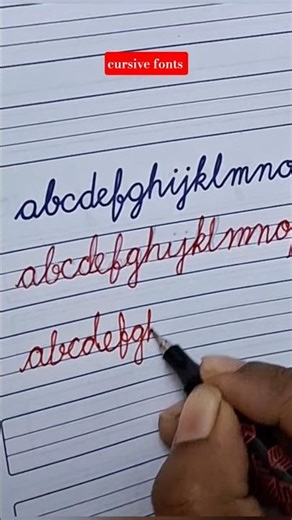 cursive fonts
abcdefghijklmno
abcdefghijklmno
abcdefgh